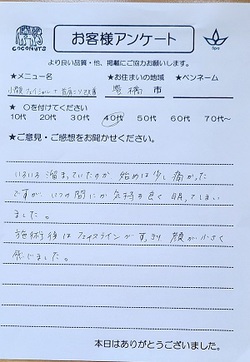 COCONUTS
お客様アンケート
より良い品質・他、掲載にご協力お願いします。
★メニュー名 ★お住まいの地域 ★ペンネーム
豊橋 市
★ ○を付けてください
10代 20代 30代 40代 50代 60代 70代~
★ご意見・ご感想をお聞かせください。
いろいろ溜まっていたのか 始めは少し痛かった
ですが、いつの間にか気持ち良く 眠ってしまい
ました。
施術後は フェイスラインが すっきり 顔が小さく
感じました。
本日はありがとうございました。